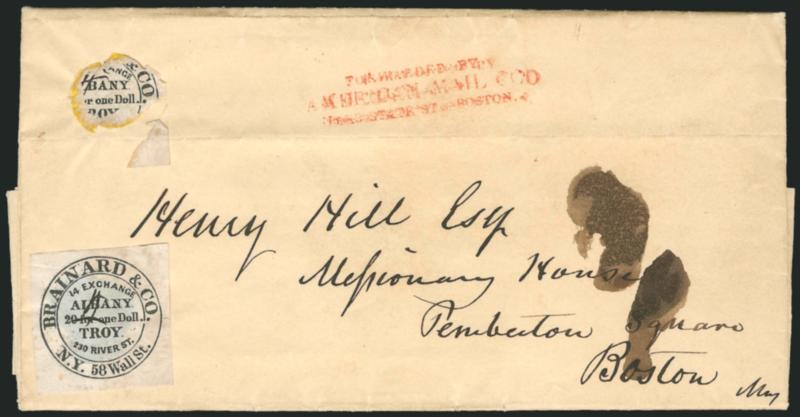 & CO
EXCHANGE
BANY
one Doll.
ROY
FORWARDED BY
AMERICAN MAIL CO
BOSTON.
Henry Hill Esq
Missionary House
Pemberton Square
Boston
BRAINARD & CO.
14 EXCHANGE
ALBANY
20 for one Doll.
TROY.
230 RIVER ST.
N.Y. 58 Wall St.